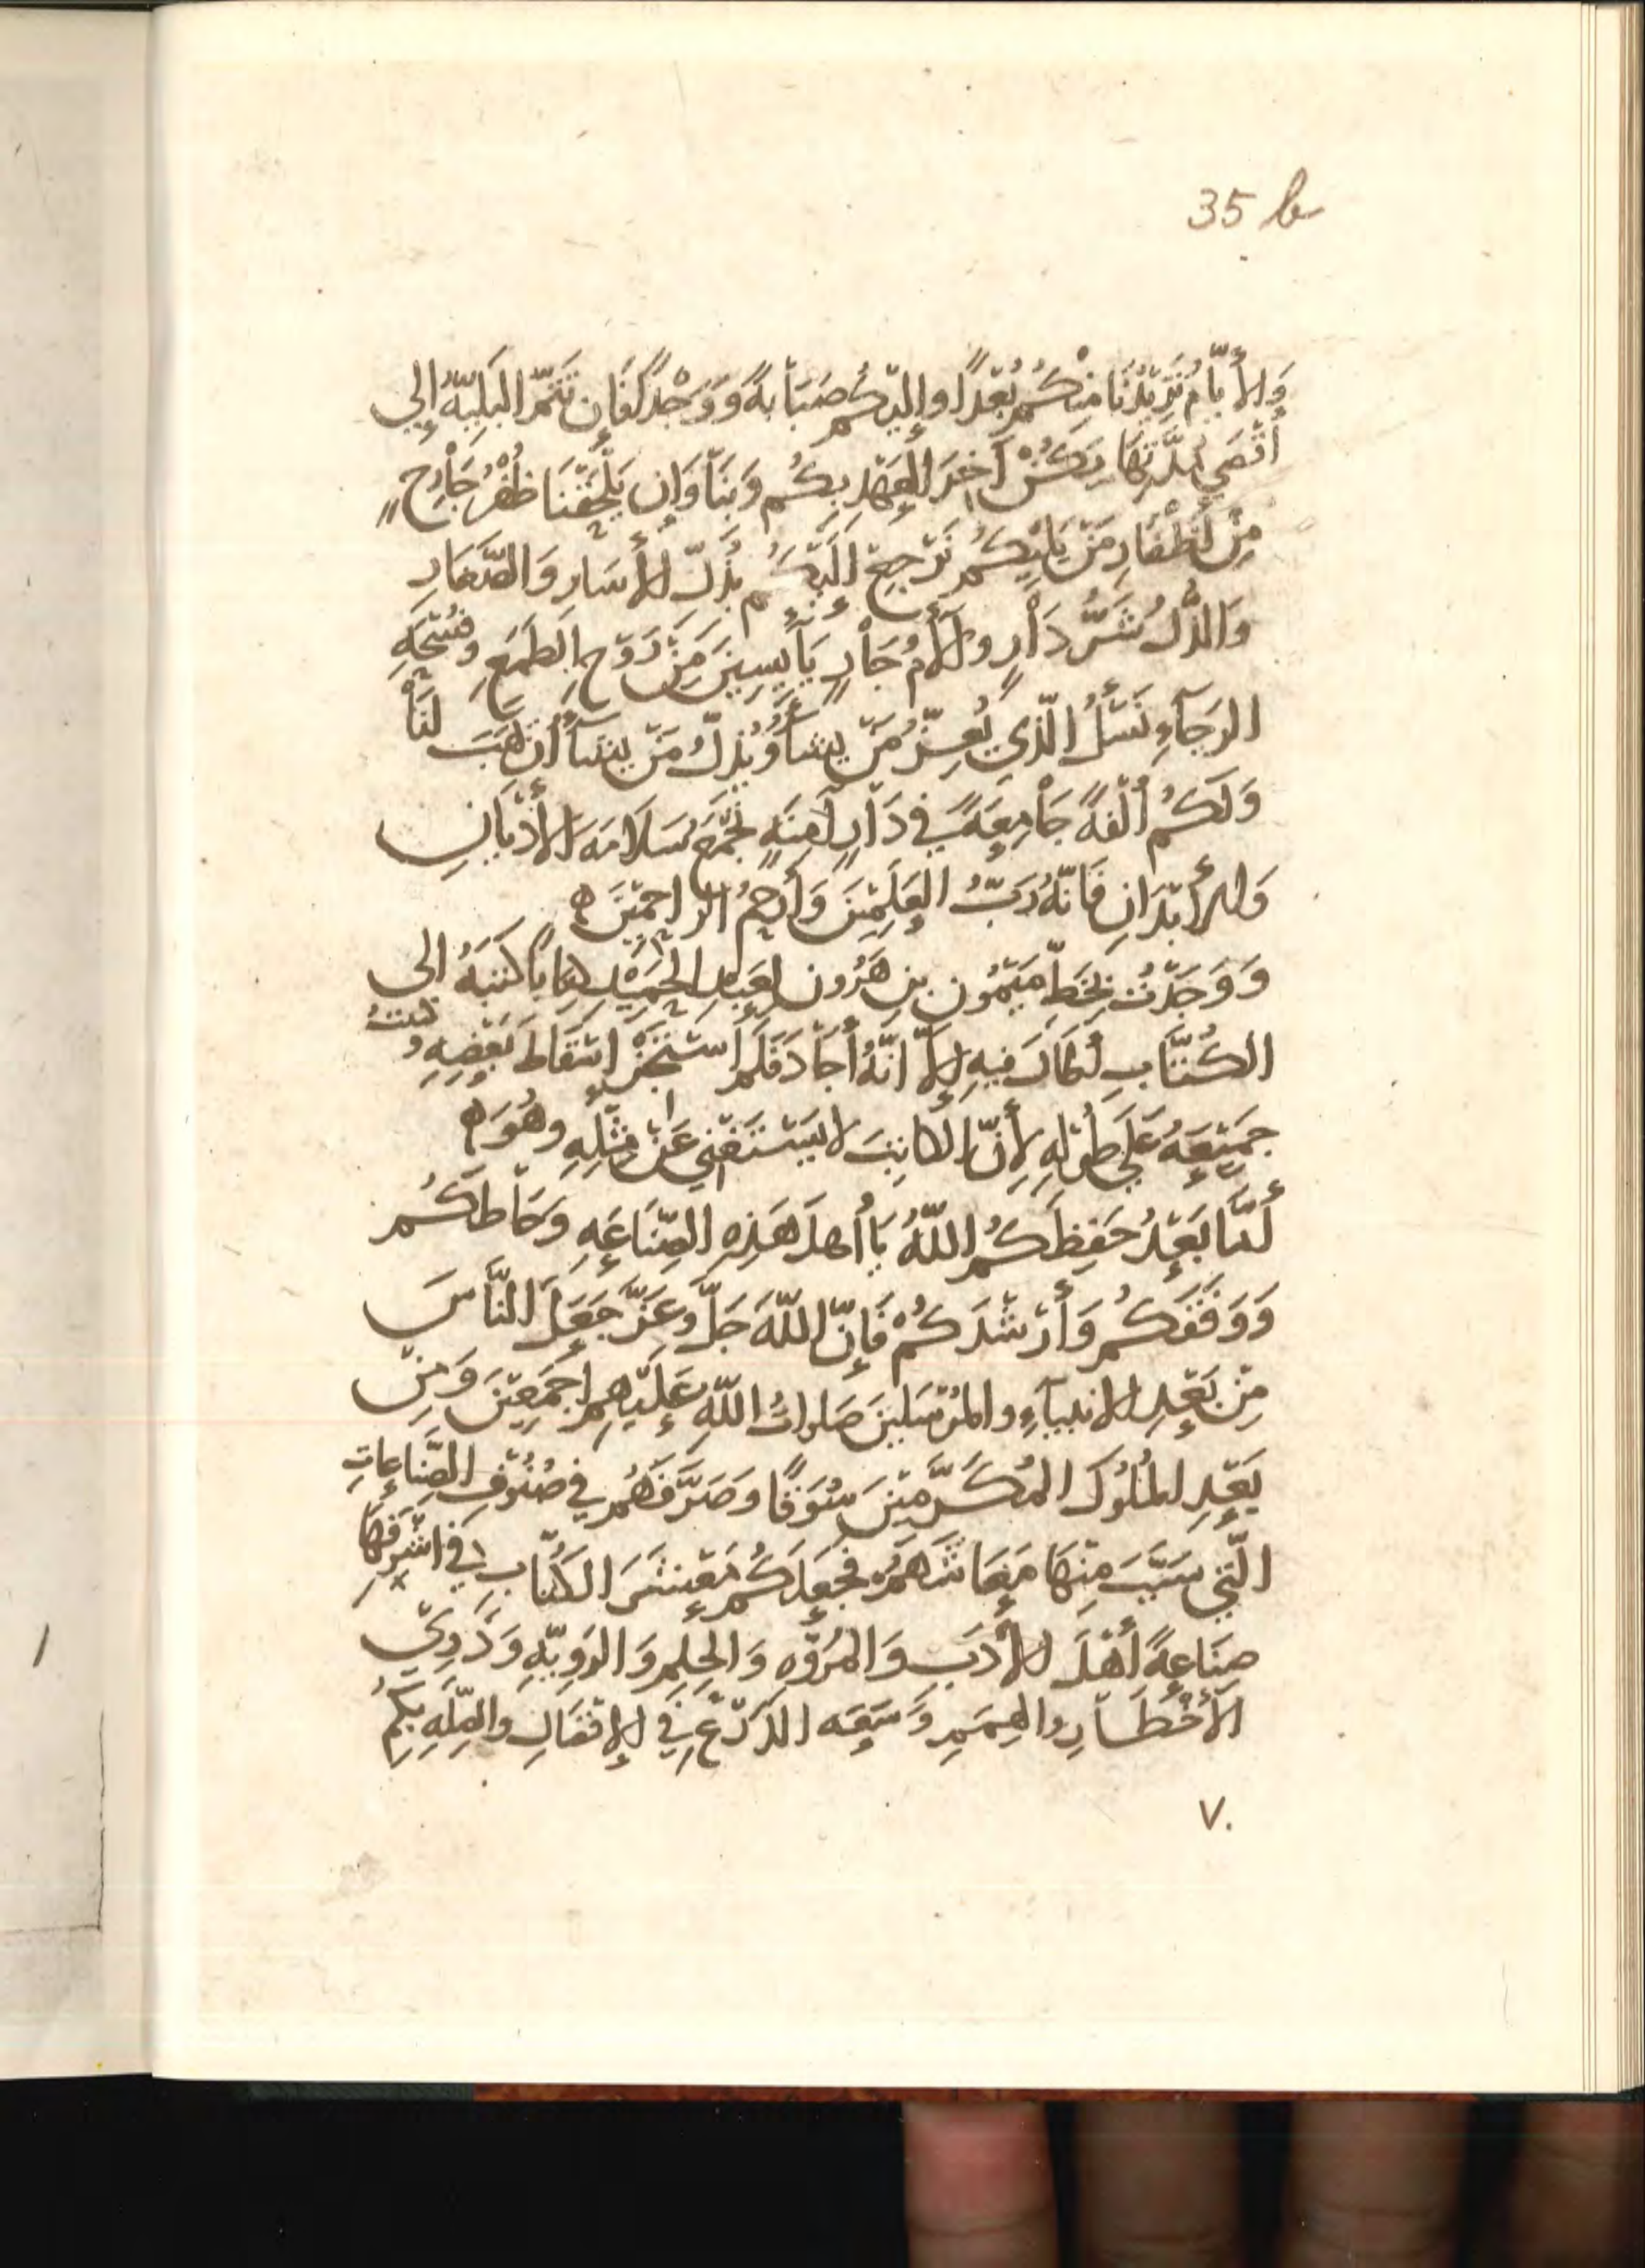 35 b
وَالأَيّامُ تَزِيْدُنَا مِنْكُمْ بُعْدًا وإِلَيْكُم صَبَاْبةً وَوَجْدًا فَإِن تَتِمَّ البَلِيّةُ إِلى
أَقْصَي مُدَّتِهَا يَكُنْ آخِرَ العَهْدِ بِكُم وَبِنَا وَإِن يَلْحَقْنَا ظُفْرٌ جَاْرِحٌ
مِنْ أَظْفَارِ مَنْ يَلِيْكُمْ نَرْجِعْ إِلَيْكُم بِذُلِّ الأَسَارِ وَالصَّغَارِ
وَالذُّلُ شَرُّ دَاْرٍ وَأَلأَمُ جَاْرٍ يَآيِسِيْنَ مِنْ رَوْحِ الطَمَعِ وفُسْحَةِ
الرَجَآءِ نَسْئَلُ الَّذِي يُعِزُّ مَنْ يشَآءُ وَيُذِلُّ مَنْ يشَآءُ أَن يَهَبَ لنَاْ
وَلَكُم أُلْفَةً جَاْمِعَةً في دَاْرٍ آمِنَةٍ تَجْمَعُ سَلَامَةَ الأَدْيَانِ
وَالأَبْدَانِ فَانّهُ رَبُّ العَلَمِيْنَ وَأَرحَمُ الرَّاحِمِيْنَ ه
وَوَجَدْتُ بِخَطِّ مَيْمُون بنِ هَرُون لِعَبدِ الحَمِيْدِ كِتَابًا كَتَبَهُ الى
الكُتَّابِ أَطَالَ فيهِ إِلاّ انّهُ أَجَاْدَ فَلَم أَسْتَجِزْ إِسْقَاطَ بَعْضِهِ وكتبتُ
جَمِيْعَهُ عَلَي طُوْلِهِ لأَِنّ الكاتِبَ لا يَسْتَغْنِي عَنْ مِثْلِهِ وهُوَ ه
أَمّا بَعْدُ حَفِظَكُم اللّهُ يَا أهلَ هَذِهِ الصِّنَاعَةِ وَحَاْطَكُم
وَوَفّقَكُم وَأَرْشَدَكُمْ فَإِنّ اللّهَ جَلَّ وعَزَّ جَعَلَ النَّاْسَ
مِنْ بَعْدِ الانبيَآءِ والمُرْسَلينَ صَلواتُ اللّهِ عَلَيْهِم اجْمَعِيْنَ وَمِنْ
بَعْدِ المُلُوكِ المُكَرَّمِيْنَ سُوَقًا وَصَرَّفَهُم في صُنُوْفِ الصِّنَاعَاتِ
الّتي سَبَّبَ مِنْهَا مَعَاشَهُمْ فجَعَلَكُم مَعْشَرَ الكُتّابِ في اشْرَفِهَا
صِنَاعةً أَهْلَ الأَدَبِ وَالمُرُوّهِ وَالحِلمِ وَالرَوِيّةِ وَذَوِيْ
الأَخْطَاْرِ والهِمَمِ وَسَعَه الذَرْعِ في الإِفْضَالِ والصِّلَةِ بِكُمْ
٧٠